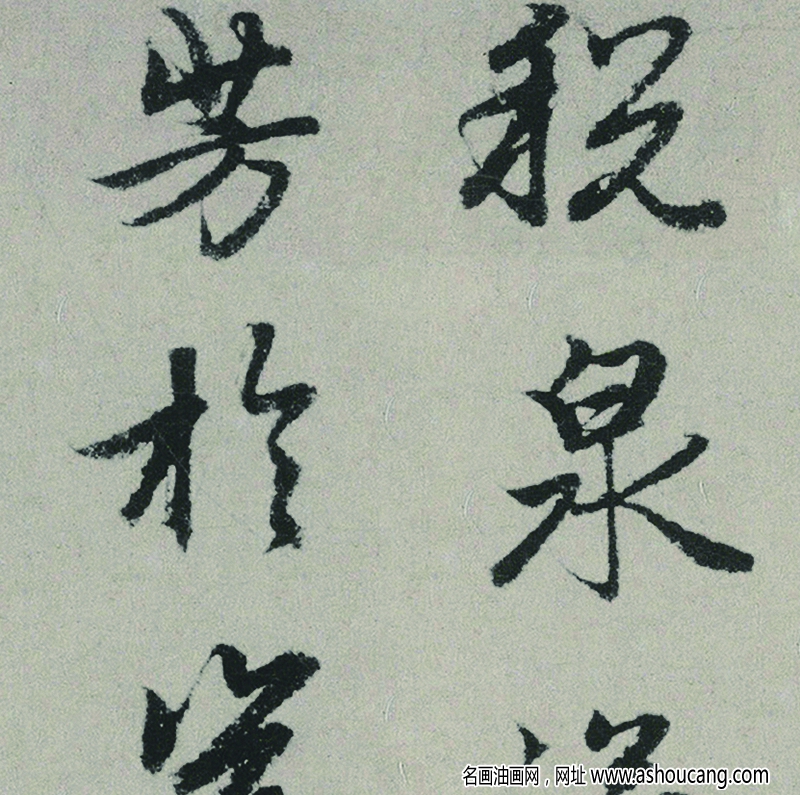 税泉
芳於
名画油画网，网址 www.ashoucang.com